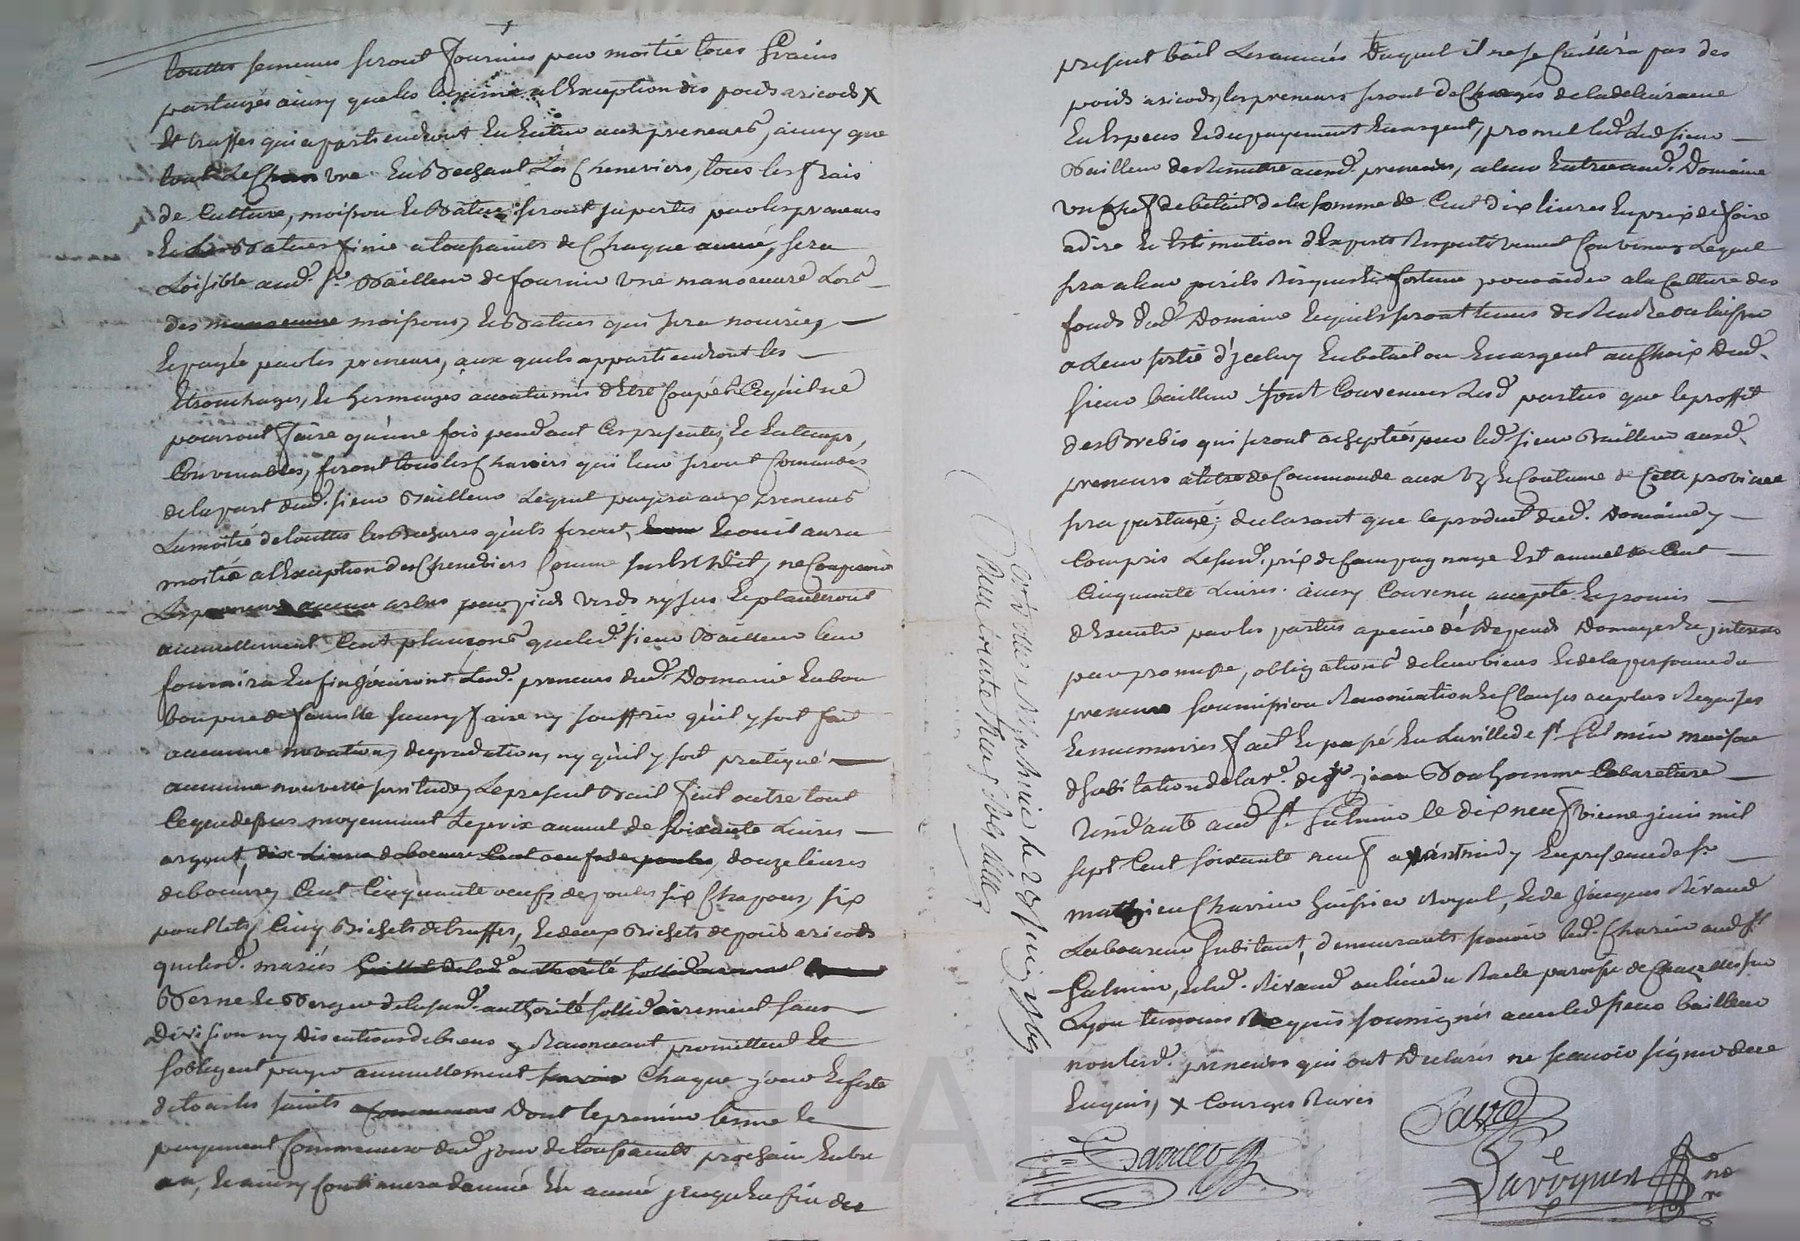 touttes semences seront fournies par moitié tous grains
partagés ainsy que les legumes a l'Exception des pois aricods x
Et truffes qui apartiendront En Entier aux preneurs, ainsy que
tout Le Chanvre En Bechant Les Cheneviers, tous les frais
de Culture, moisson et Batture seront suportés par les preneurs
Et La Batture finie a toussaints de Chaque année, sera
Loisible aud. sr. Bailleur de fournir une manoeuvre Lors
des manoeuvre moissons, et Battures qui sera nourrie,
Et payée par les preneurs, aux quels appartiendront les
Etronchages, et hermages accoutumés d'Etre Coupés Ce qu'il ne
pourront faire qu'une fois pendant Ces presentes, et En temps
Convenables, feront tous les Charois qui leur seront Comandés
de la part dud. sieur Bailleur Lequel payera aux preneurs
La moitié de touttes les Bechures qu'ils feront,
moitié a l'Exception des Cheneviers Comme sus Est Dit, ne Couperont
Les preneurs aucun arbres par pieds verds ny secs Et planteront
annuellement Cent plançons que led. sieur Bailleur leur
fournira Enfin Jouiront Lesd. preneurs dud. Domaine En bon
bon pere de famille sans y faire ny souffrir qu'il y soit fait
aucunne novation, degradation, ny qu'il y soit pratiqué
aucunne nouvelle servitude, Le present Bail fait outre tout
Ce que dessus moyennant Le prix annuel de soixante Livres
argent, dix Livres de beurre Cent oeufs de poules, douze livres
de beurre, Cent Cinquante oeufs de poules six Chapons, six
poullets, Cinq Bichets de truffes, et deux Bichets de pois aricods
que lesd. mariés
Berne et Berger de la sud. authorité sollidairement sans
Division ny Discution de biens y Renonceant promettent et
s'obligent payer annuellement Chaque jour et feste
de tous les saints Dont le premier terme et
payement Commencera dud. jour de toussaints prochain En un
an, et ainsy Continuera d'année En année jusqu'En fin du
present bail Les années Duquel il ne se Cuillira pas des
pois aricods, les preneurs seront deChargés de la delivrance
En Espece et du payement En argent, promet led. sieur
Bailleur de Remettre auxd. preneurs, a leur Entrée aud. Domaine
un Chef de betail de la somme de Cent dix livres En prix de foire
a dire et Estimation d'Experts Respectivement Convenus Lequel
sera a leur perils Risques et fortune pour aider a la Culture des
fonds dud. Domaine lequel seront tenus de Rendre ou laisser
a Leur sortie d'jceluy En betail ou En argent au Choix Dud.
sieur bailleur sont Convenues Lesd. parties que le proffit
des Brebis qui seront acheptées par led. sieur Bailleur auxd.
preneurs a titre de Commande aux Us et Coutume de Cette province
sera partagé; declarant que le produit dud. Domaine y
Compris Le sud. prix de Est annuel de Cent
Cinquante Livres. ainsy Convenu accepté Et promis
d'Executer par les parties a peine de Depends Domages et interests
par promesse, obligations de leur biens et de la personne du
preneur soumission Renonciation et Clauses au plus Requises
Et necessaires fait et passé En La ville de st. Galmier maison
d'habitation de la Ve. de jean Bonhomme Cabaretiere
Residante aud. st. Galmier le dix neufvieme juin mil
sept Cent soixante neuf apres midy En presence de sr.
mathieu Charrier huissier Royal, et de Jacques Rivaud
Laboureur habitant, demeurants sçavoir led. Charier aud. st.
Galmier, et led. Rivaud au lieu du paroisse de Chazelles sur
Lyon temoins Requis soussignés avec led. sieur bailleur
non lesd. preneurs qui ont Declarés ne scavoir signer de ce
Enquis, x Courges Raves
Controllé a st. galmier le 28 juin 1769
Reçu trente trois sols